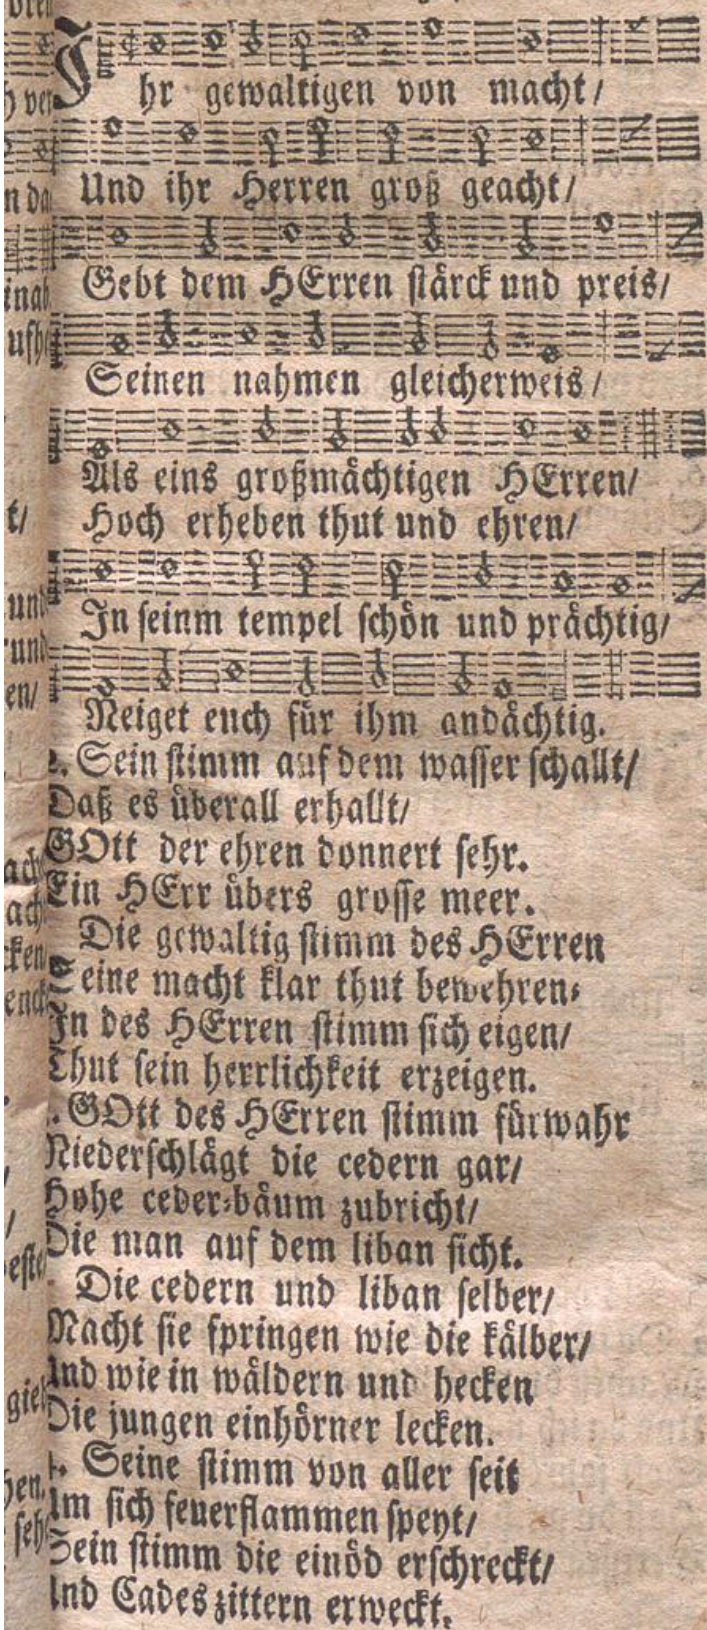 Ihr gewaltigen von macht/
Und ihr Herren groß geacht/
Gebt dem HErren stärck und preis/
Seinen nahmen gleicherweis/
Als eins großmächtigen HErren/
Hoch erheben thut und ehren/
In seinm tempel schön und prächtig/
Neiget euch für ihm andächtig.
2. Sein stimm auf dem wasser schallt/
Daß es überall erhallt/
GOtt der ehren donnert sehr.
Ein HErr übers grosse meer.
Die gewaltig stimm des HErren
Seine macht klar thut bewehren:
In des HErren stimm sich eigen/
Thut sein herrlichkeit erzeigen.
. GOtt des HErren stimm fürwahr
Niederschlägt die cedern gar/
Hohe ceder-bäum zubricht/
Die man auf dem liban sicht.
Die cedern und liban selber/
Macht sie springen wie die kälber/
Und wie in wäldern und hecken
Die jungen einhörner lecken.
4. Seine stimm von aller seit
Um sich feuerflammen speyt/
Sein stimm die einöd erschreckt/
Und Cades zittern erweckt.